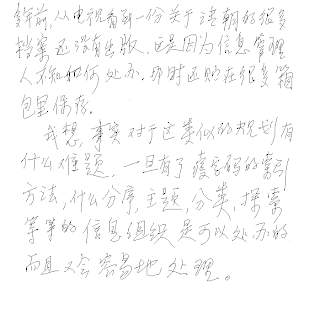 年前,从电视看到一份关于清朝的很多
档案还没有出版,这是因为信息管理
人不知如何处办,即时还贮在很多箱
包里保存。
我想,事实对于这类似的规划有
什么难题,一旦有了瘦字码的索引
方法,什么分序,主题,分类,探索
等等的信息组织是可以处办的
而且又会容易地处理。